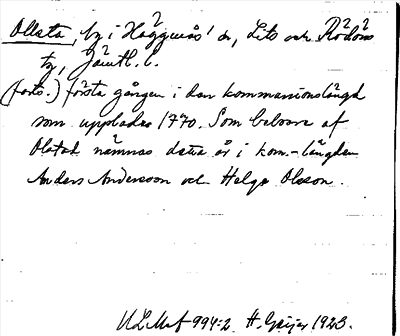 Ollsta, by i Häggenås' sn, Lits och Rödöns
tg, Jämtl. l.
(forts.) första gången i den kommunionslängd
som upplades 1770. Som beboare af
Olstad nämnas detta år i kom.-längden
Anders Andersson och Helge Olsson.
ULMA f 994:2 H. Geijer 1923.